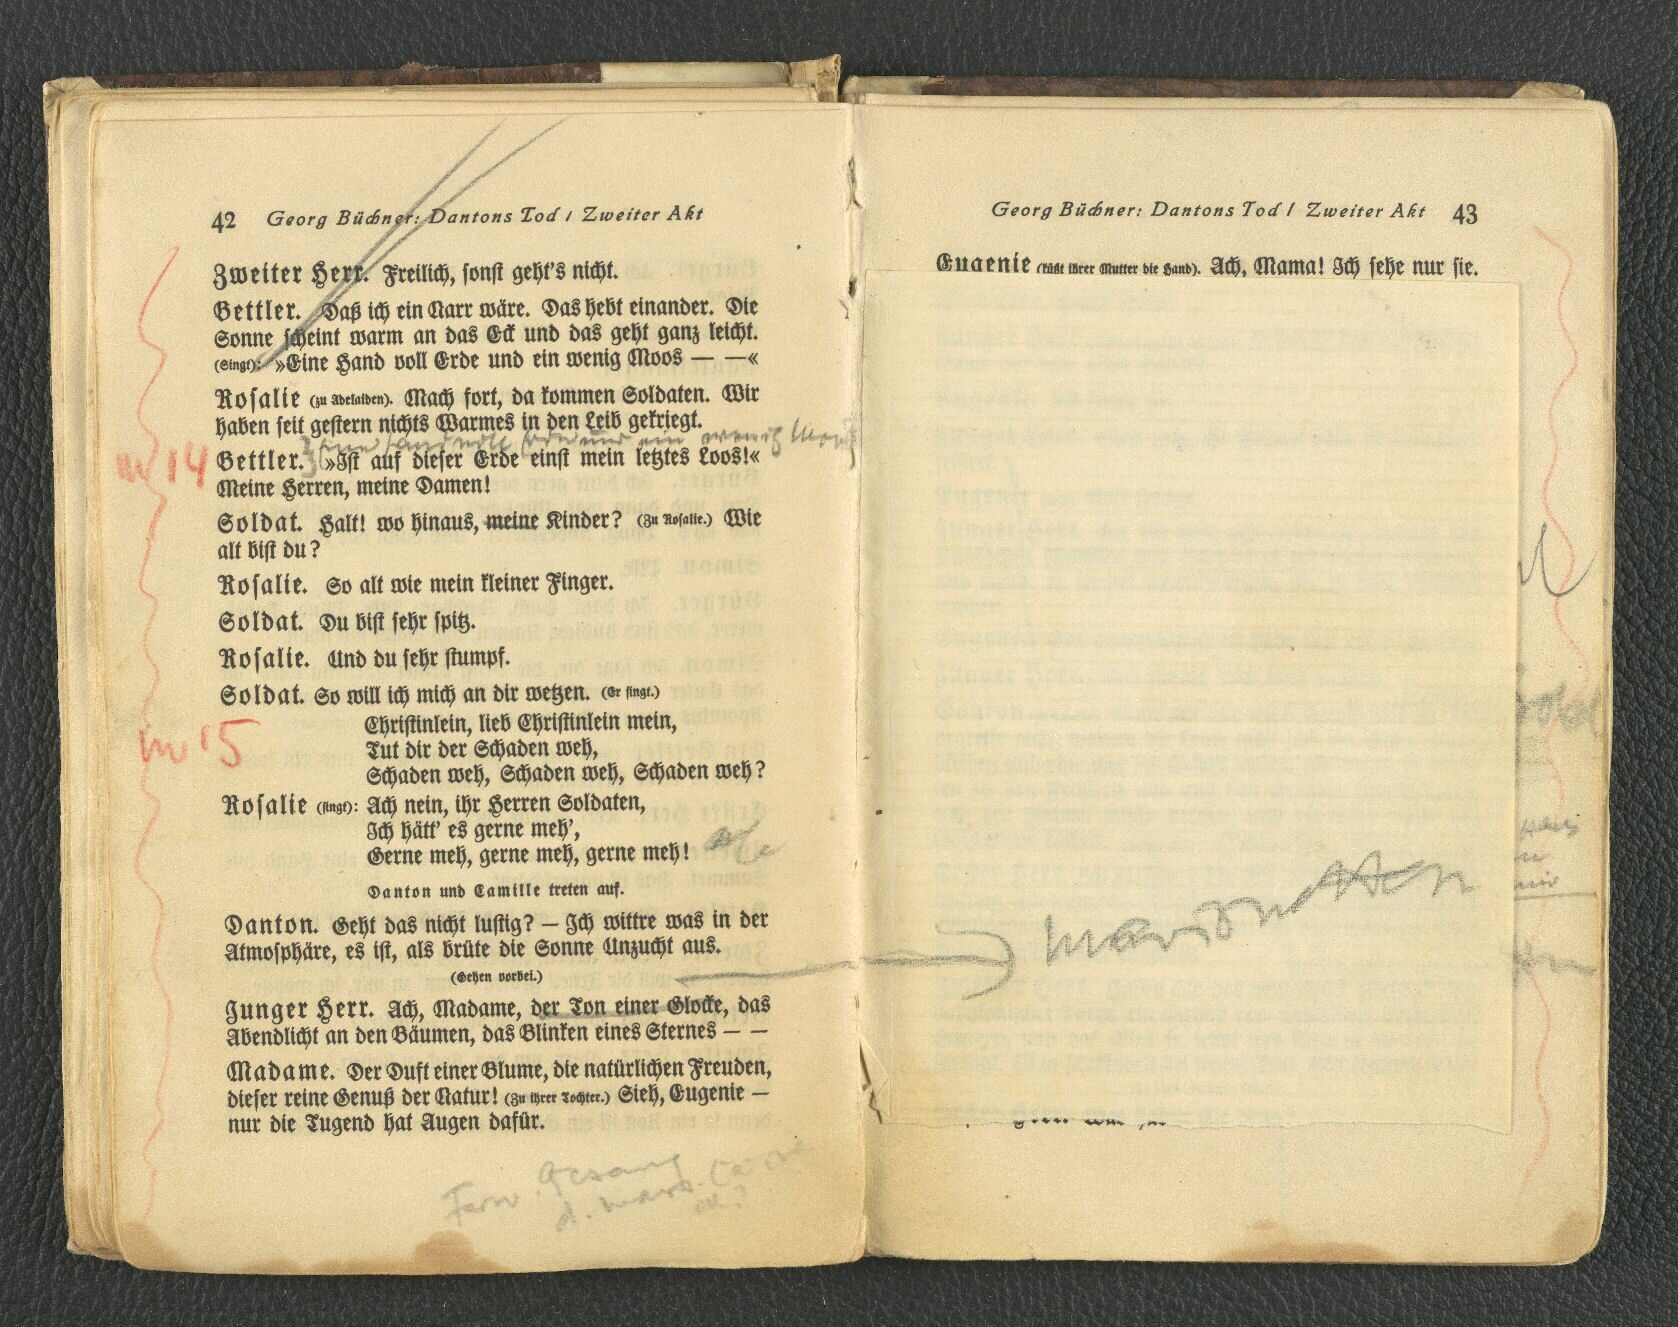 42 Georg Büchner: Dantons Tod / Zweiter Akt
Zweiter Herr. Freilich, sonst geht's nicht.
Bettler. Daß ich ein Narr wäre. Das hebt einander. Die
Sonne scheint warm an das Eck und das geht ganz leicht.
(Singt): »Eine Hand voll Erde und ein wenig Moos — —«
Rosalie (zu Adelaiden). Mach fort, da kommen Soldaten. Wir
haben seit gestern nichts Warmes in den Leib gekriegt.
ein wenig Moos
14
Bettler. »Ist auf dieser Erde einst mein letztes Loos!«
Meine Herren, meine Damen!
Soldat. Halt! wo hinaus, meine Kinder? (Zu Rosalie.) Wie
alt bist du?
Rosalie. So alt wie mein kleiner Finger.
Soldat. Du bist sehr spitz.
Rosalie. Und du sehr stumpf.
Soldat. So will ich mich an dir wetzen. (Er singt.)
Christinlein, lieb Christinlein mein,
15
Tut dir der Schaden weh,
Schaden weh, Schaden weh, Schaden weh?
Rosalie (singt): Ach nein, ihr Herren Soldaten,
Ich hätt' es gerne meh',
Gerne meh, gerne meh, gerne meh!
Danton und Camille treten auf.
Danton. Geht das nicht lustig? — Ich wittre was in der
Atmosphäre, es ist, als brüte die Sonne Unzucht aus.
(Gehen vorbei.)
Junger Herr. Ach, Madame, der Ton einer Glocke, das
Abendlicht an den Bäumen, das Blinken eines Sternes — —
Madame. Der Duft einer Blume, die natürlichen Freuden,
dieser reine Genuß der Natur! (Zu ihrer Tochter.) Sieh, Eugenie —
nur die Tugend hat Augen dafür.
Fern. Gesang
d.
Georg Büchner: Dantons Tod / Zweiter Akt 43
Eugenie (küßt ihrer Mutter die Hand). Ach, Mama! Ich sehe nur sie.
Marionetten